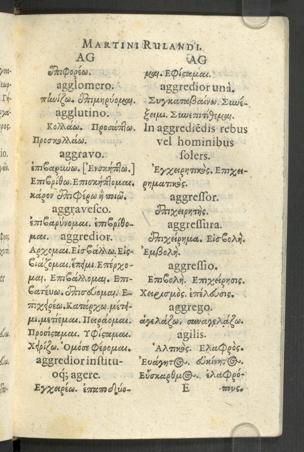 MARTINI RULANDI.
AG AG
Ἐπιφορέω.
agglomero.
Ἐπιμηρύομαι.
agglutino.
Κολλάω. Προσκολλάω
aggravo.
Ἐπιβαρύνω. [Ἐνσκήπτω.]
Ἐπιβρίθω. Ἐπισκήπτομαι.
aggravesco.
ἐπιβαρύνομαι. ἐπιβρίθο-
μαι. aggredior.
Ἄρχομαι. Εἰσβάλλω. Εἰσ-
βιάζομαι. ἔπειμι. Ἐπέρχο-
μαι. Ἐπιβάλλομαι. Ἐπι-
πιχειρέω. Κατάρχω. μέτει-
μι. μετέρχομαι. Πειράομαι.
Προσίσταμαι. Ὑφίσταμαι.
Ὁμόσε φέρομαι.
aggredior institu-
oq; agere.
Ἐγχειρέω.
μαι. Ἐφίσταμαι.
aggredior unà.
Συγκαταβαίνω. Συνέ-
ξειμι. Συνεπιτίθεμαι.
In aggrediēdis rebus
vel hominibus
solers.
Ἐγχειρητικὸς. Ἐπιχει-
ρηματικὸς.
aggressor.
Ἐπιχειρητής.
aggressura.
Ἐπιχείρημα. Εἰσβολὴ.
Ἐμβολὴ.
aggressio.
Ἐπιβολὴ. Ἐπιχείρησις.
Χειρισμὸς. ἐπέλευσις.
aggrego.
ἀγελάζω. συναγελάζω.
agilis.
Ἁλτικὸς. Ἐλαφρὸς.
Εὐάγητος. εὐκίνητος.
Εὔσκαρθμος. ἐλαφρό-
E πους.